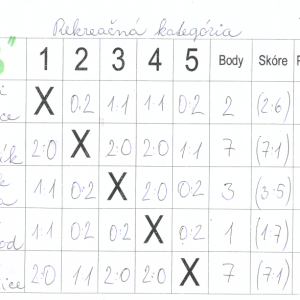 Rekreačná kategória
1 2 3 4 5 Body Skóre
X 0:2 1:1 1:1 0:2 2 (2:6)
2:0 X 2:0 2:0 1:1 7 (7:1)
1:1 0:2 X 2:0 0:2 3 (3:5)
1:1 0:2 0:2 X 0:2 1 (1:7)
2:0 1:1 2:0 2:0 X 7 (7:1)